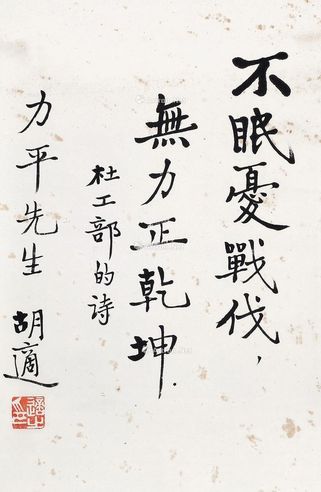 不眠憂戰伐，
無力正乾坤．
杜工部的詩
力平先生 胡適